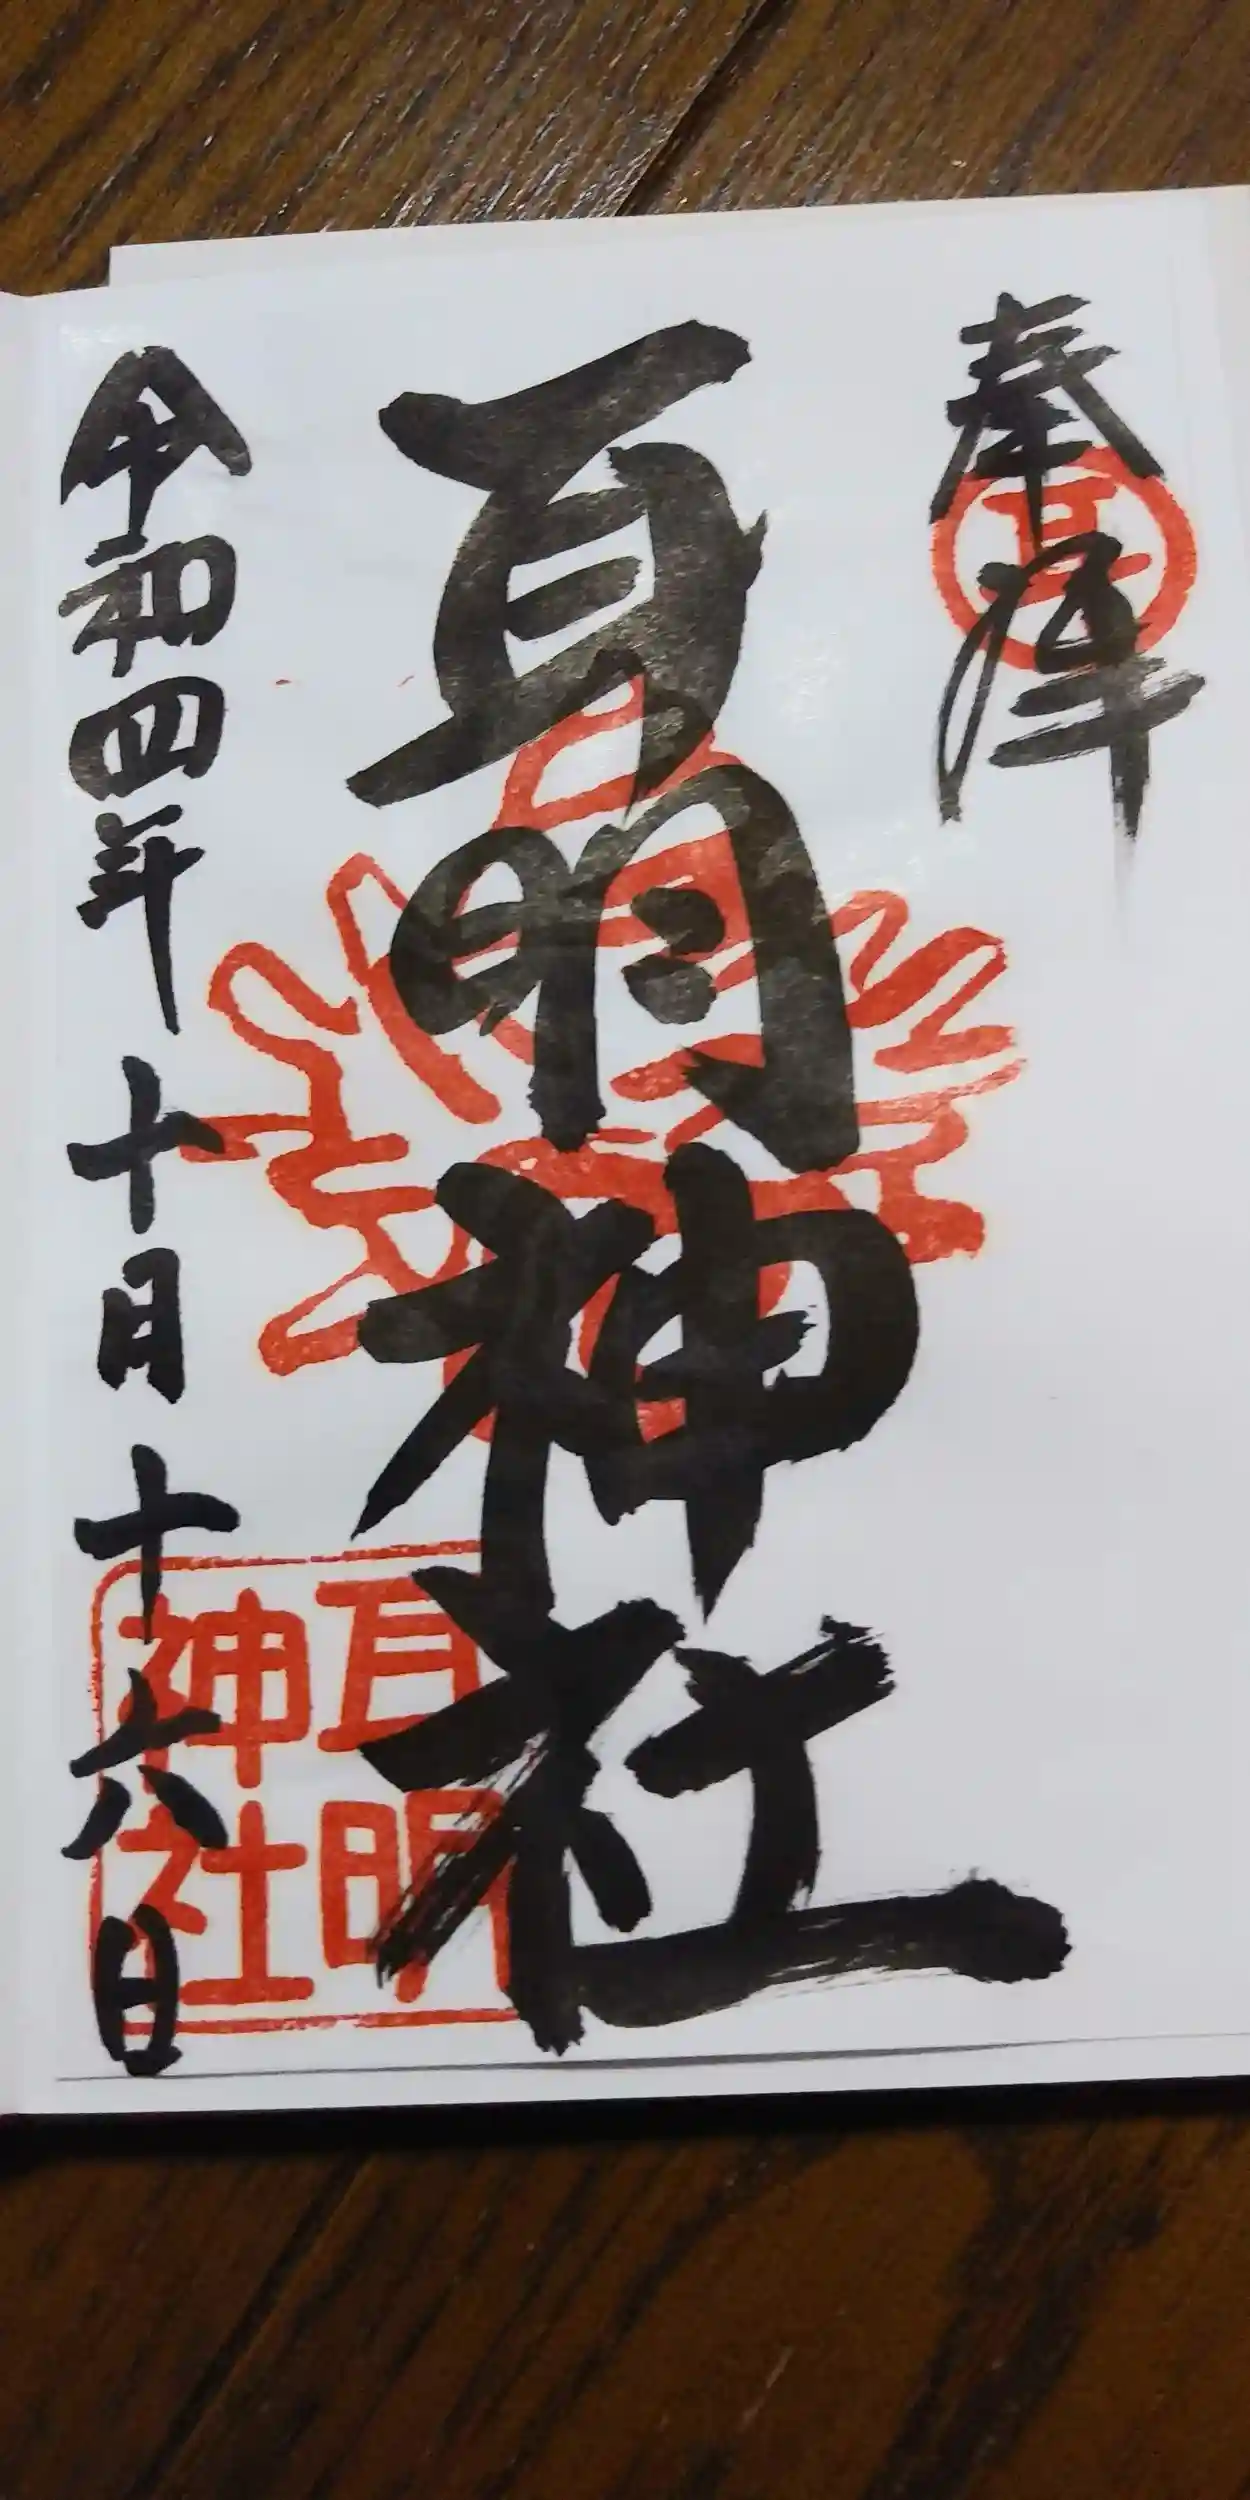 奉拝
耳
耳明神社
令和四年十月十六日
耳明
神社